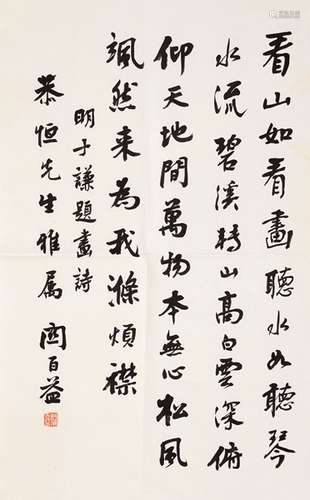 看山如看畫聽水如聽琴
水流碧溪轉山高白雲深俯
仰天地間萬物本無心松風
颯然來為我滌煩襟
明于謙題畫詩
恭恒先生雅屬 關百益